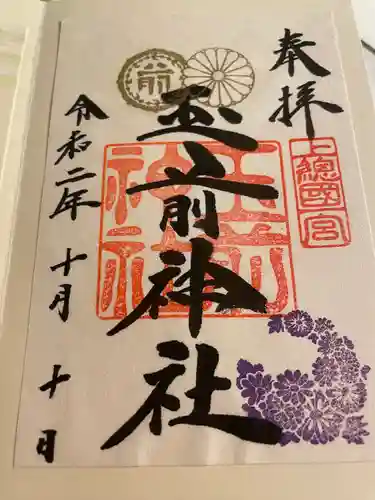 奉拝
上總國一宮
玉前神社
玉前神社
前
令和二年十月十日